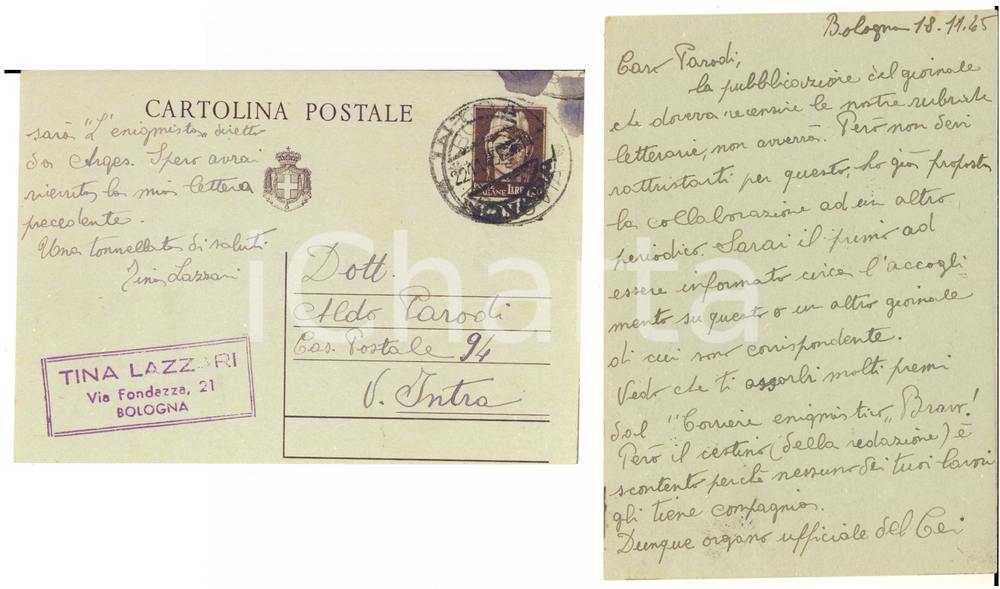 CARTOLINA POSTALE
sarà "L'enigmista„ diretto
da Arges. Spero avrai
ricevuto la mia lettera
precedente.
Una tonnellata di saluti
Tina Lazzari
Dott.
Aldo Parodi
Cas. Postale 94
V. Intra
TINA LAZZARI
Via Fondazza, 21
BOLOGNA
LIRE
iCharta
Bologna 18.11.45
Caro Parodi,
la pubblicazione del giornale
che doveva recensire le nostre rubriche
letterarie, non avverrà. Però non devi
rattristarti per questo, ho già proposta
la collaborazione ad un altro
periodico. Sarai il primo ad
essere informato circa l'accogli
mento su questo o un altro giornale
di cui sono corrispondente.
Vedo che ti assorbi molti premi
dal "Corriere enigmistico„ Bravo!
Però il cestino (della redazione) è
scontento perchè nessuno dei tuoi lavori
gli tiene compagnia.
Dunque organo ufficiale del Cei